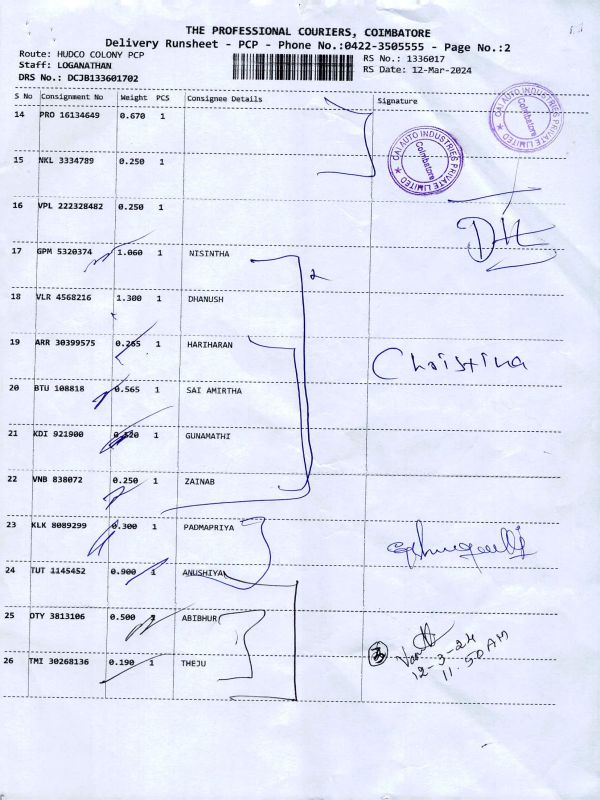 THE PROFESSIONAL COURIERS, COIMBATORE
Delivery Runsheet - PCP - Phone No.:0422-3505555 - Page No.:2
Route: HUDCO COLONY PCP
Staff: LOGANATHAN
DRS No.: DCJB133601702
RS No.: 1336017
RS Date: 12-Mar-2024
S No Consignment No Weight PCS Consignee Details Signature
14 PRO 16134649 0.670 1
CAI AUTO INDUSTRIES PRIVATE LIMITED
Coimbatore
CAI AUTO INDUSTRIES PRIVATE LIMITED
Coimbatore
15 NKL 3334789 0.250 1
16 VPL 222328482 0.250 1
17 GPM 5320374 1.060 1 NISINTHA
2
18 VLR 4568216 1.300 1 DHANUSH
19 ARR 30399575 0.265 1 HARIHARAN
Christina
20 BTU 108818 0.565 1 SAI AMIRTHA
21 KDI 921900 1 GUNAMATHI
22 VNB 838072 0.250 1 ZAINAB
23 KLK 8089299 0.300 1 PADMAPRIYA
24 TUT 1145452 0.900 1 ANUSHIYA
25 OTY 3813106 0.500 ABIBHUR
26 TMI 30268136 0.190 1 THEJU
12-3-24
11.50 AM